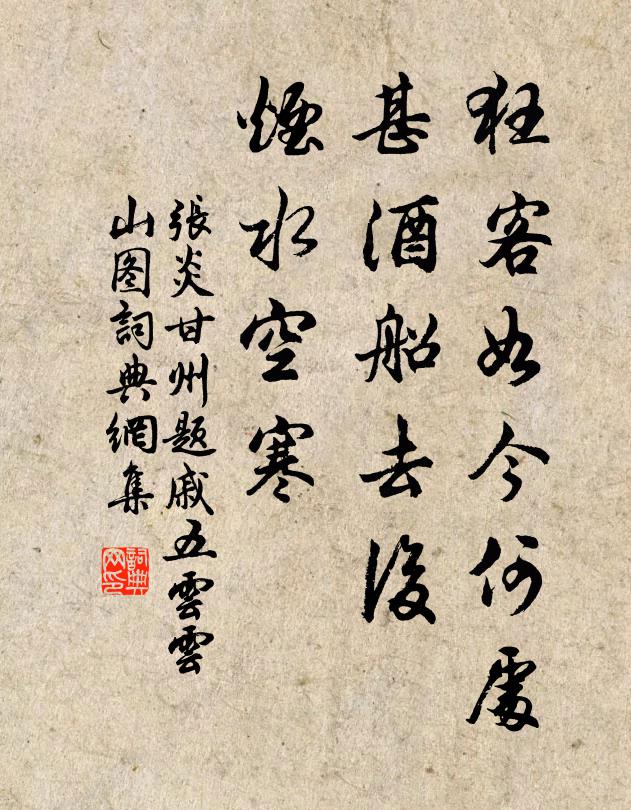 狂客如今何處
甚酒船去後
煙水空寒
張炎甘州題戚五雲雲
山图詞典網集
詞典
网印